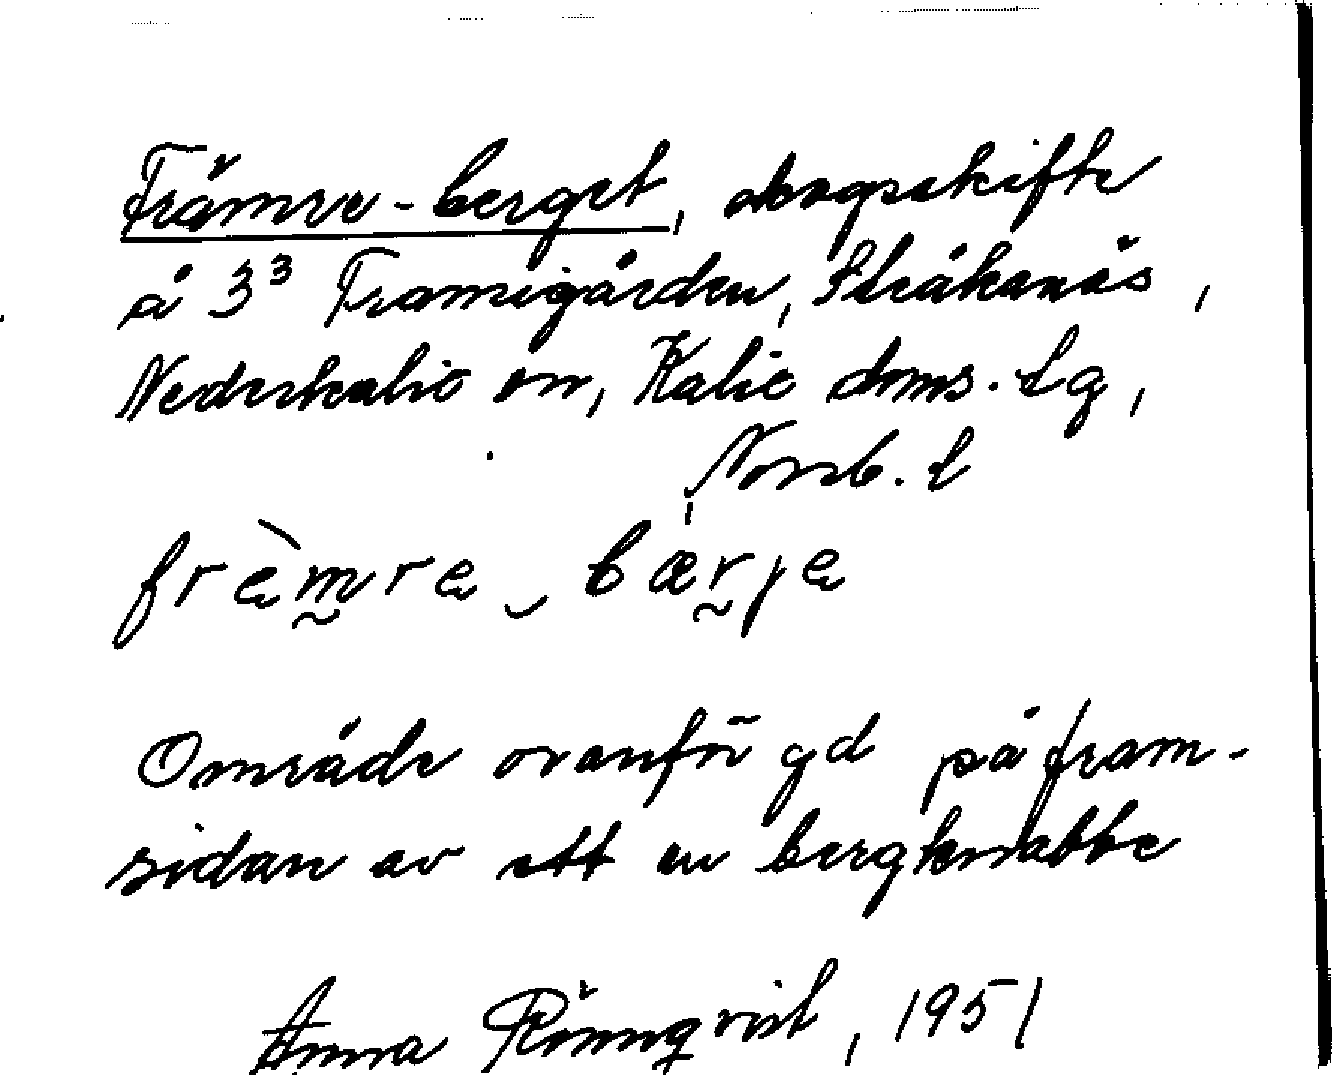 Främre-berget, skogsskifte
å 3³ Framigården, Stråkanäs,
Nederkalix sn, Kalix doms. tg,
Norrb. l
fre̠mre ‿ bærje
Område ovanför gd på fram-
sidan av ett en bergknabbe
Anna Rönnqvist, 1951